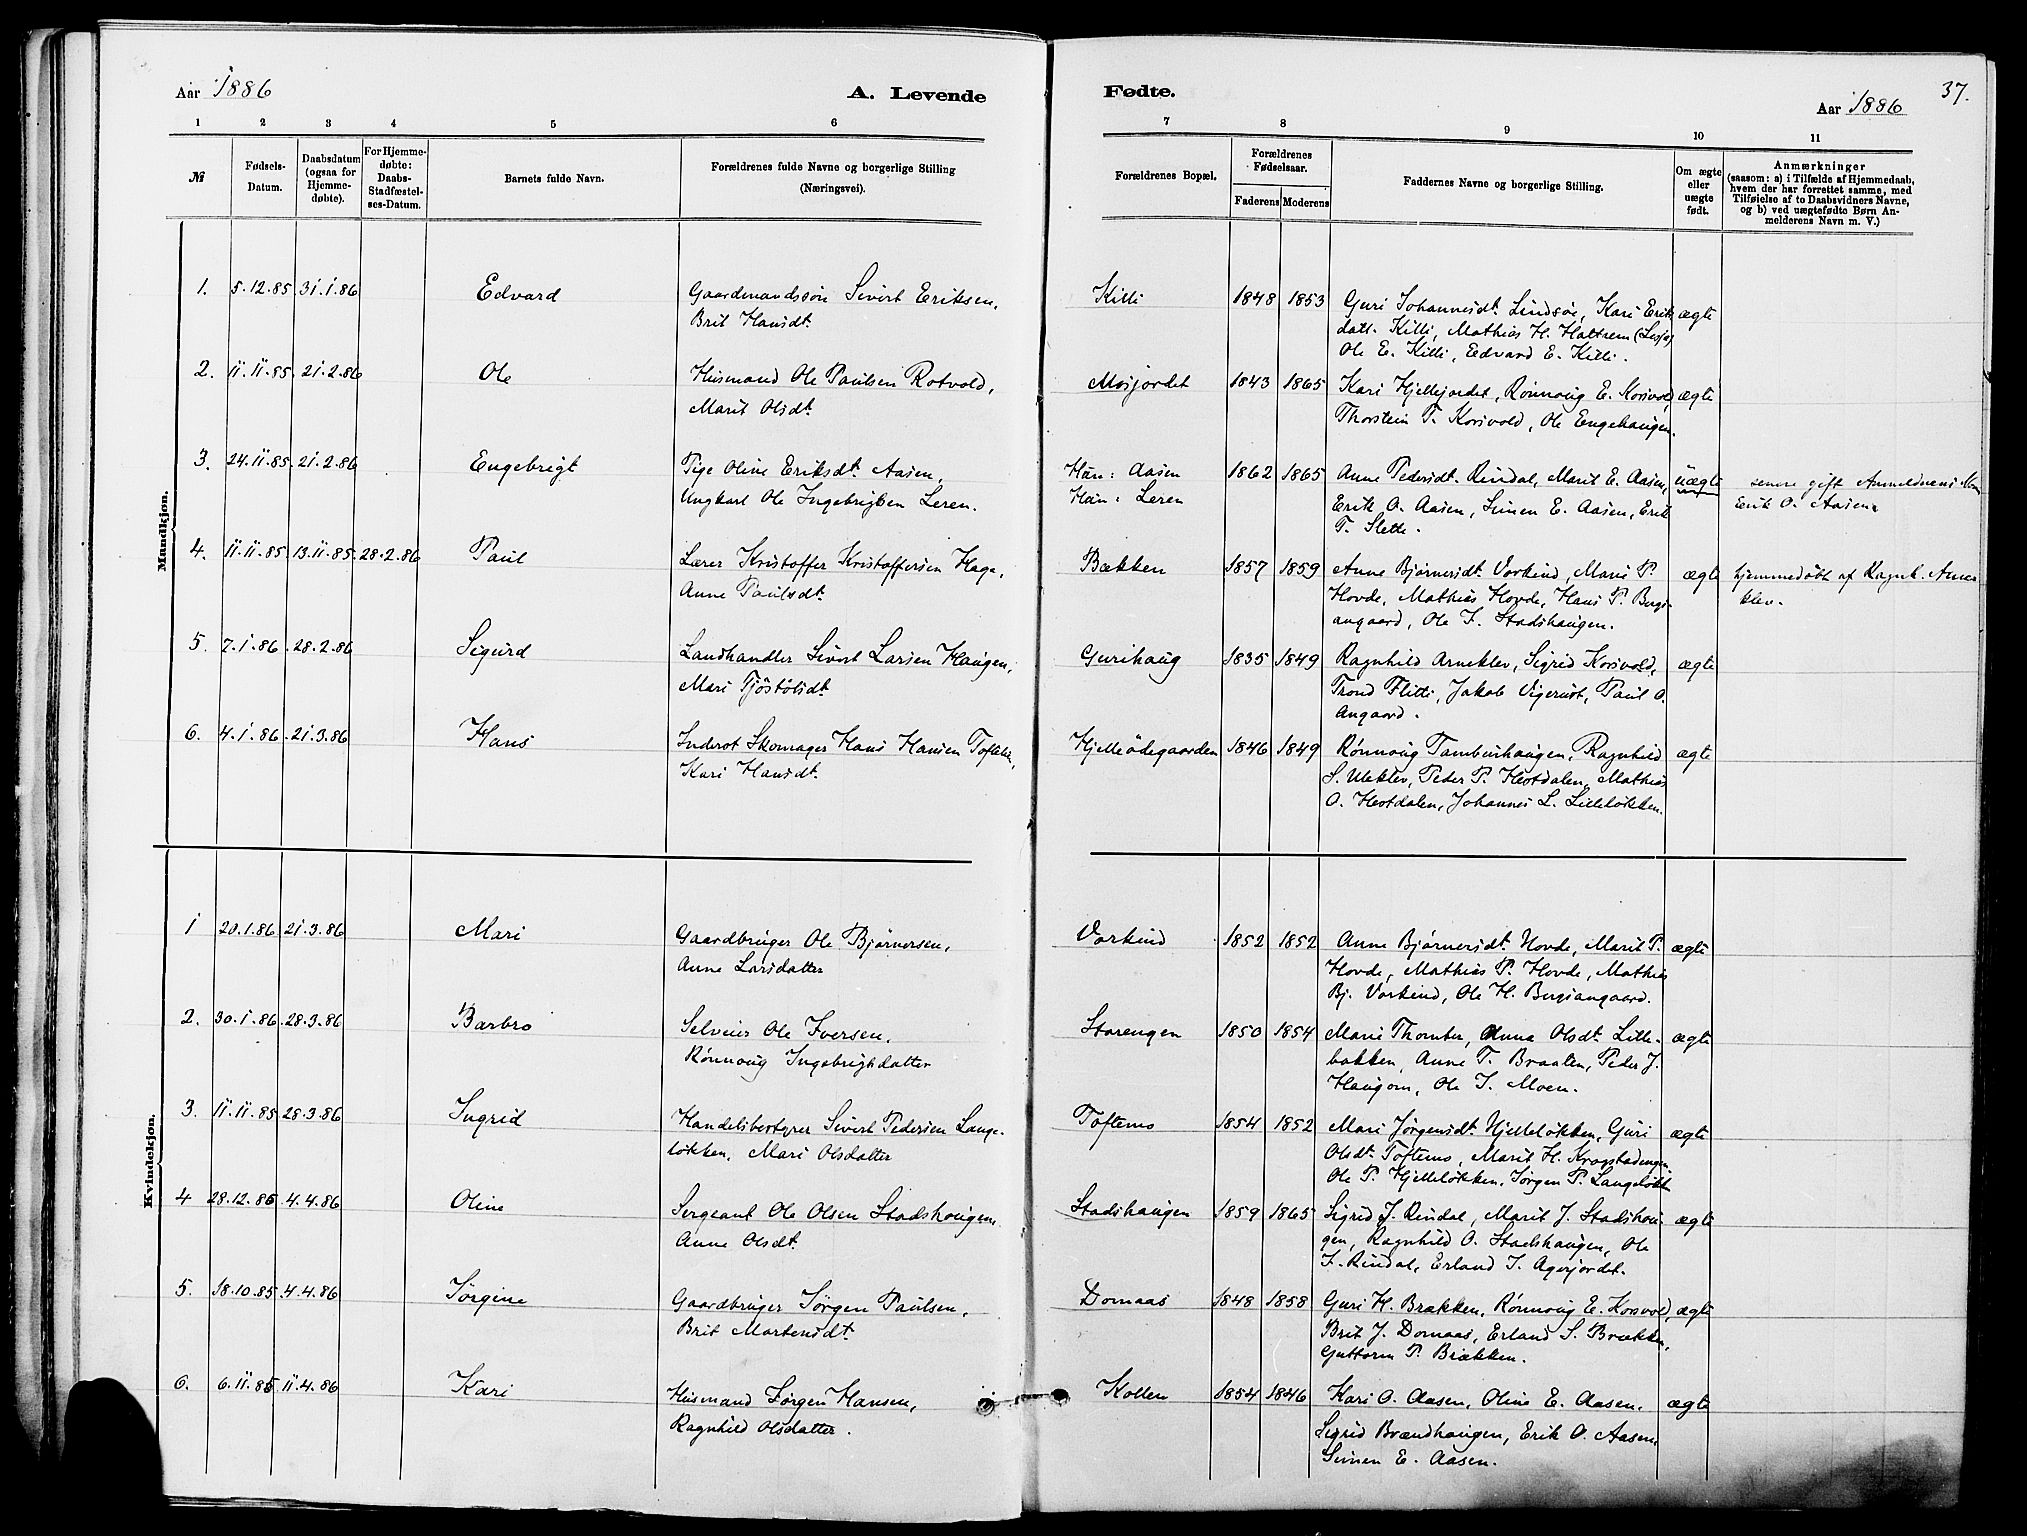 Aar 1886
A. Levende
1 2 3 4 5 6
№
Fødsels-
Datum.
Daabsdatum
(ogsaa for
Hjemme-
døbte).
For Hjemme-
døbte:
Daabs-
Stadfæstel-
ses-Datum.
Barnets fulde Navn.
Forældrenes fulde Navne og borgerlige Stilling
(Næringsvei).
Mandkjøn.
1. 5.12.85 31.1.86 Edvard Gaardmandssøn Sivert Eriksen,
Brit Hansdt.
2. 11.11.85. 21.2.86 Ole Husmand Ole Paulsen Rotvold,
Marit Olsdt.
3. 24.11.85. 21.2.86 Engebrigt Pige Oline Eriksdt. Aasen,
Ungkarl Ole Ingebrigtsen Leren.
4. 11.11.85. 13.11.85. 28.2.86 Paul Lærer Kristoffer Kristoffersen Hage,
Anne Paulsdt.
5. 7.1.86. 28.2.86 Sigurd Landhandler Sivert Larsen Haugen,
Mari Tjøstolsdt.
6. 4.1.86. 21.3.86 Hans Inderst Skomager Hans Hansen
Kari Hansdt.
Kvindekjøn.
1 20.1.86 21.3.86 Mari Gaardbruger Ole Bjørnersen,
Anne Larsdatter
2. 30.1.86. 28.3.86 Barbro Selveier Ole Iversen,
Rønnoug Ingebrigtsdatter
3. 11.11.85 28.3.86 Ingrid Handelsbestyrer Sivert Pedersen Lange-
løkken, Mari Olsdatter
4 28.12.85 4.4.86 Oline Sergeant Ole Olsen Stadshaugen,
Anne Olsdt.
5. 18.10.85 4.4.86 Jørgine Gaardbruger Jørgen Paulsen,
Brit Mortensdt.
6. 6.11.85 11.4.86 Kari Husmand Jørgen Hansen,
Ragnhild Olsdatter.
Fødte.
Aar 1886
37.
7 8 9 10 11
Forældrenes Bopæl.
Forældrenes
Fødselsaar.
Faderens Moderens
Faddernes Navne og borgerlige Stilling.
Om ægte
eller
uægte
født.
Anmærkninger
(saasom: a) i Tilfælde af Hjemmedaab,
hvem der har forrettet samme, med
Tilføielse af to Daabsvidners Navne,
og b) ved uægtefødte Børn An-
melderens Navn m. V.)
Killi 1848 1853 Guri Johannesdt. Lindsøe, Kari Eriks ægte
datt. Killi, Mathias H. Hattrem (Lesja)
Ole E. Killi, Edvard E. Killi.
Mosjordet 1843 1865 Kari Hjellejordet, Rønnoug E. Korsvold, ægte
Thorstein T. Korsvold, Ole Engehaugen.
Hun: Aasen 1862 1865 Anne Pedersdt. Rindal, Marit E. Aasen, uægte senere gift Anmelderens Navn
Han: Leren Erik O. Aasen, Simen E. Aasen, Erik Erik O. Aasen
T. Slette.
Bækken 1857 1859 Anne Bjørnersdt. Vorkind, Marie P. ægte hjemmedøbt af Ragnh. Arne
Hovde, Mathias Hovde, Hans P. Bergs- klev.
angaard, Ole J. Stadshaugen.
Gurihaug 1835 1849 Ragnhild Arneklev, Sigrid Korsvold, ægte
Trond Flitti, Jakob Vigerust, Paul O.
Angaard.
Hjelleødegaarden 1846 1849 Rønnoug Tamburhaugen, Ragnhild ægte
S. Uleklev, Peder P. Hestdalen, Mathias
O. Hestdalen, Johannes L. Lilleløkken.
Vorkind 1852 1852 Anne Bjørnersdt. Hovde, Marit P. ægte
Hovde, Mathias P. Hovde, Mathias
Bj. Vorkind, Ole H. Bergsangaard.
Storengen 1850 1854 Marie Thomter, Anna Olsdt. Lille- ægte
bakken, Anne T. Braaten, Peder J.
Haugom, Ole I. Moen.
Toftemo 1854 1852 Mari Jørgensdt. Hjelleløkken, Guri ægte
Olsdt. Toftemo, Marit H. Krogstadengen
Ole P. Hjelleløkken, Jørgen P. Langeløkk
Stadshaugen 1859 1865 Sigrid J. Rindal, Marit J. Stadshau- ægte
gen, Ragnhild O. Stadshaugen, Ole
J. Rindal, Erland I. Agerjordet.
Domaas 1848 1858 Guri H. Brækken, Rønnoug E. Korsvold, ægte
Brit J. Domaas, Erland S. Brækken,
Guttorm P. Brækken.
Kollen 1854 1846 Kari O. Aasen, Oline E. Aasen, ægte
Sigrid Brændhaugen, Erik O. Aasen,
Simen E. Aasen.